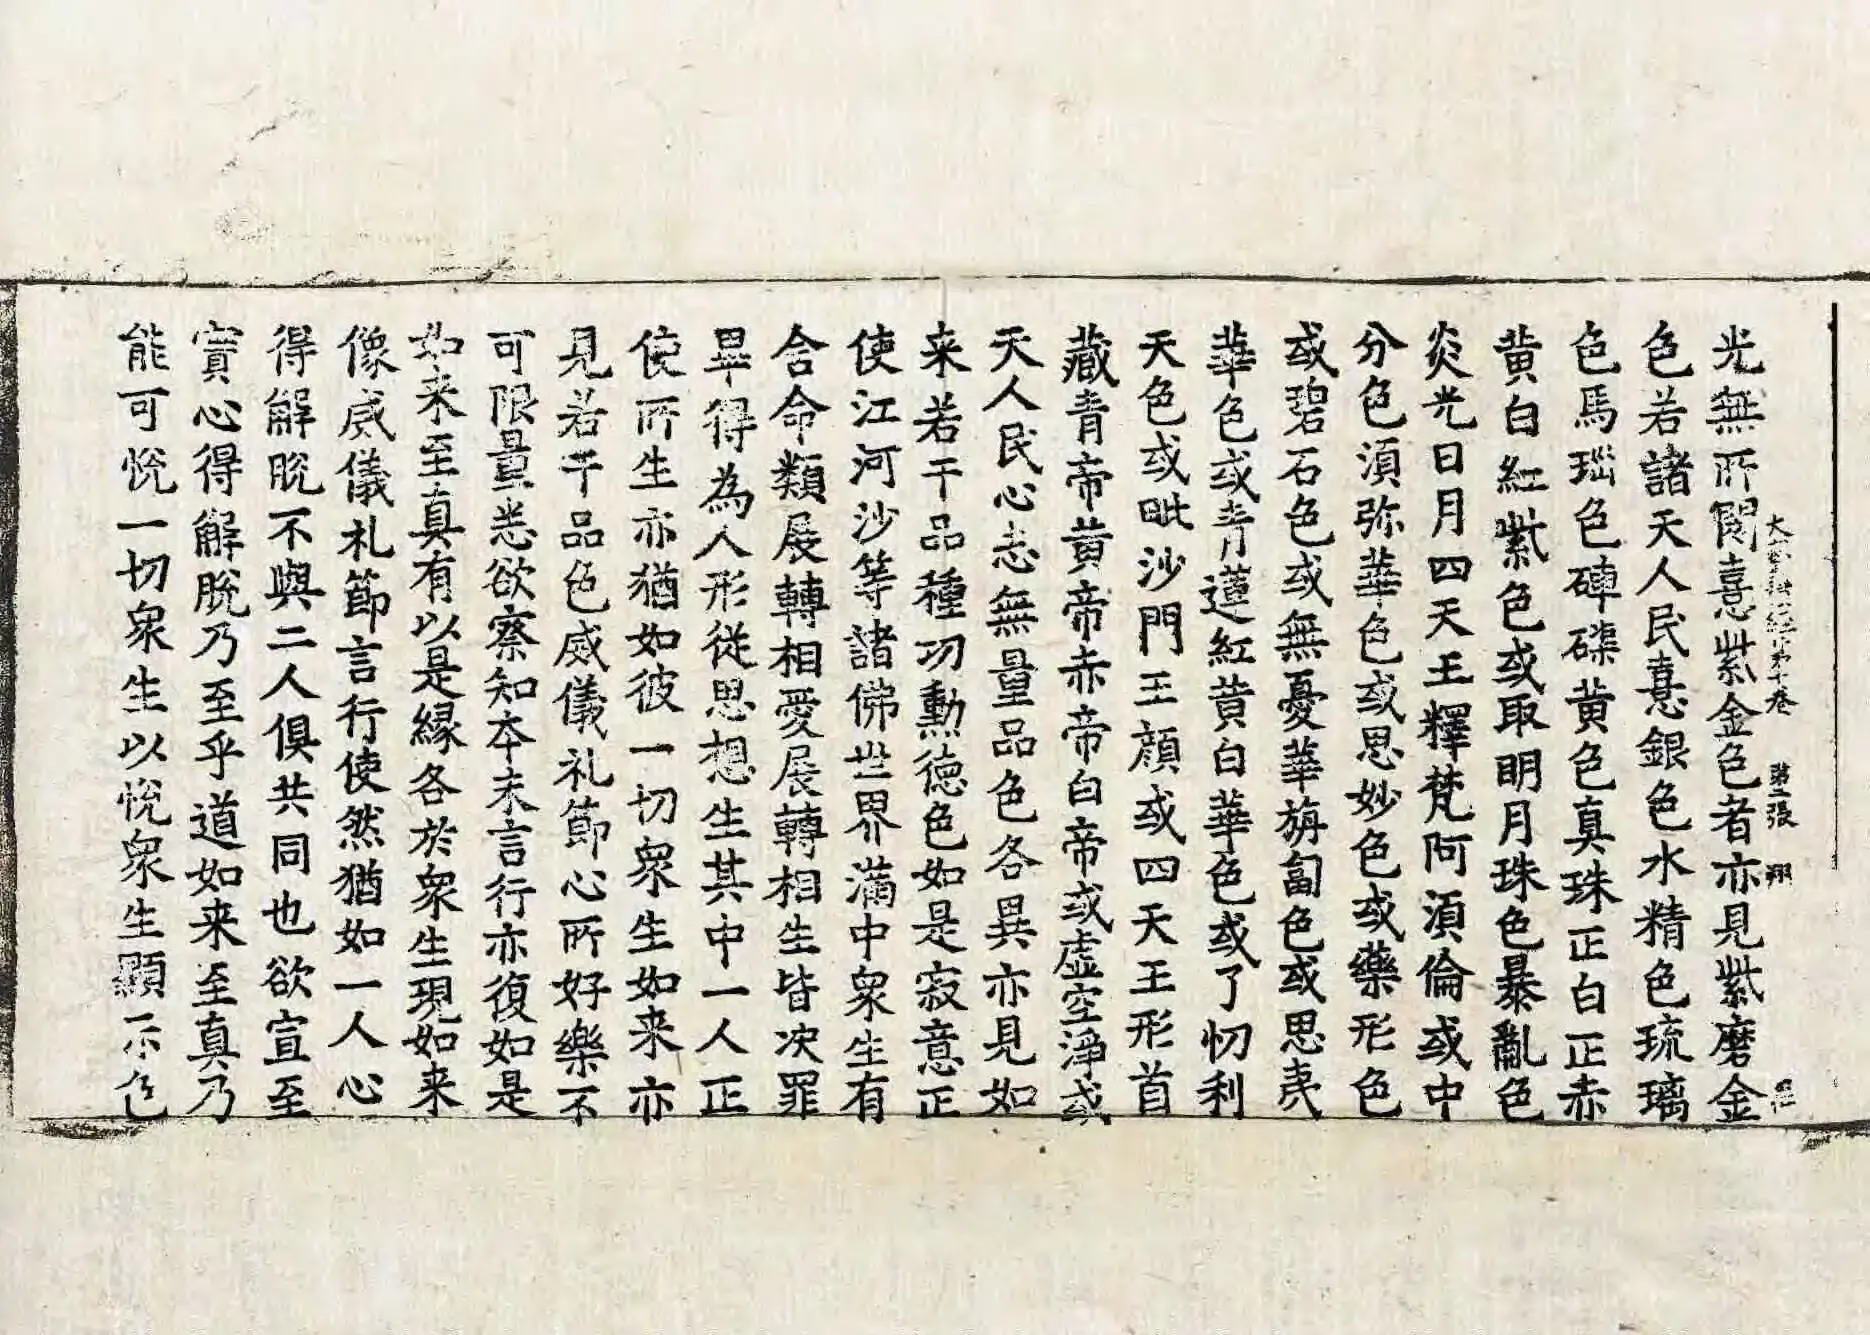 光無所閡憙紫金色者亦見紫磨金
色若諸天人民憙銀色水精色琉璃
色馬瑙色硨磲黄色真珠正白正赤
黄白紅紫色或取明月珠色暴亂色
炎光日月四天王釋梵阿湏倫或中
分色湏弥華色或思妙色或藥形色
或碧石色或無憂華旃匐色或思夷
華色或青蓮紅黄白華色或了忉利
天色或毗沙門王顔或四天王形首
藏青帝黄帝赤帝白帝或虚空淨或
天人民心志無量品色各異亦見如
来若干品種功勳徳色如是寂意正
使江河沙等諸佛世界滿中衆生有
合命類展轉相愛展轉相生皆次罪
畢得為人形從思想生其中一人正
使所生亦猶如彼一切衆生如来亦
見若干品色威儀礼節心所好樂不
可限量悉欲察知本末言行亦復如是
如来至真有以是縁各於衆生現如来
像威儀礼節言行使然猶如一人心
得解脫不與二人俱共同也欲宣至
實心得解脫乃至乎道如来至真乃
能可悅一切衆生以悅衆生顯示色